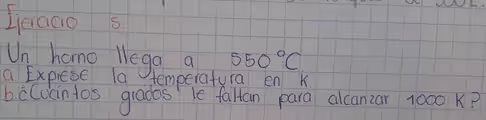 Ejercicio 5.
Un horno llega a 550 °C
a Exprese la temperatura en K
b ¿Cuántos grados le faltan para alcanzar 1000 K?